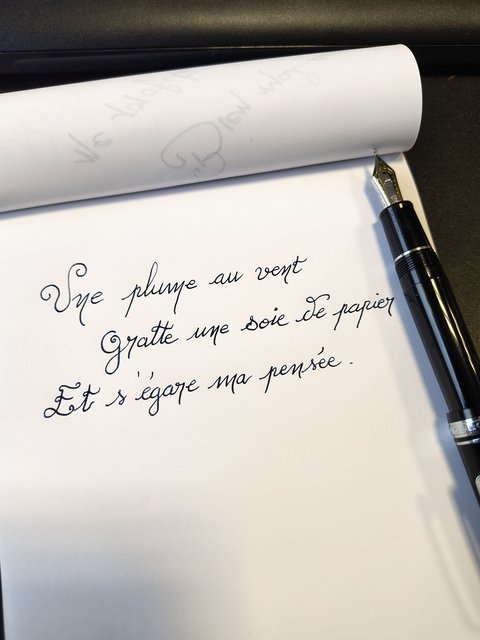 Une plume au vent
Gratte une soie de papier
Et s'égare ma pensée.